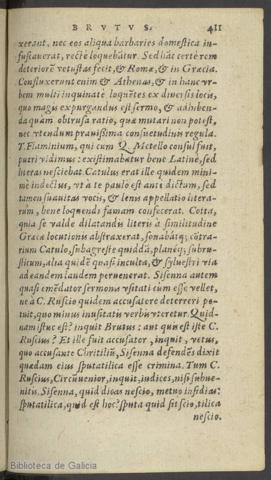 BRVTVS. 411
xerant, nec eos aliqua barbaries domestica in-
fuscauerat, rectè loquebãtur. Sed hãc certè rem
deteriorẽ vetustas fecit, & Romæ, & in Græcia.
Confluxerunt enim & Athenas, & in hanc vr-
bem multi inquinatè loquẽtes ex diuersis locis,
quo magis expurgandus est sermo, & adhiben-
da quàm obrussa ratio, quæ mutari non potest,
nec vtendum prauissima consuetudinis regula.
T. Flaminium, qui cum Q. Metello consul fuit,
pueri vidimus: existimabatur benè Latinè, sed
literas nesciebat. Catulus erat ille quidem mini-
mè indoctus, vt à te paulò est antè dictum, sed
tamen suauitas vocis, & lenis appellatio litera-
rum, bene loquendi famam confecerat. Cotta,
quia se valde dilatandis literis à similitudine
Græcæ locutionis abstraxerat, sonabátq; cõtra-
rium Catulo, subagreste quiddã, planéq; subru-
sticum, alia quidẽ quasi inculta, & syluestri via
ad eandem laudem peruenerat. Sisenna autem
quasi emẽdator sermonis vsitati cùm esse vellet,
ne à C. Ruscio quidem accusatore deterreri po-
tuit, quo minus inusitatis verbis vteretur. Quid-
nam istuc est? inquit Brutus: aut quis est iste C.
Ruscius? Et ille fuit accusator, inquit, vetus,
quo accusante C. Hirtiliũ, Sisenna defendẽs dixit
quædam eius sputatilica esse crimina. Tum C.
Ruscius, Circũuenior, inquit, iudices, nisi subue-
nitis. Sisenna, quid dicas nescio, metuo insidias:
sputatilica, quid est hoc? sputa quid sit scio, tilica
nescio.
Biblioteca de Galicia